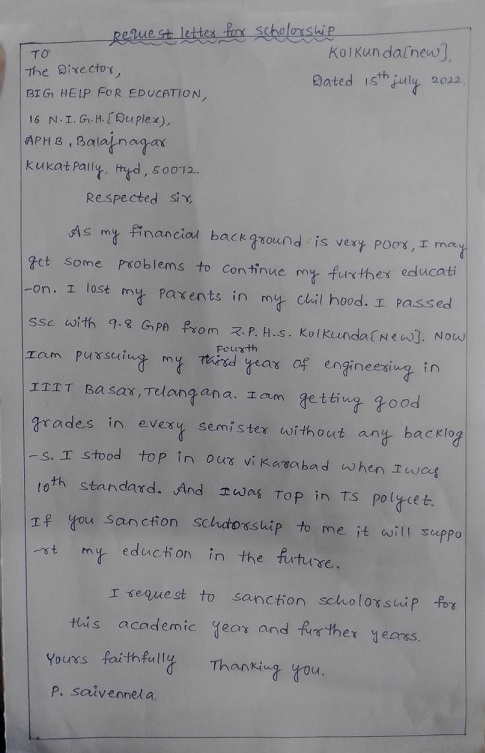 request letter for scholorship
TO
Kolkunda[new],
The Director,
Dated 15th july 2022.
BIG HELP FOR EDUCATION,
16 N.I.G.H.[Duplex),
APHB, Balajnagar
Kukatpally, Hyd, 50072.
Respected sir,
As my financial background is very poor, I may
get some problems to continue my further educati
-on. I lost my parents in my chil hood. I passed
SSC with 9.8 GPA from Z.P.H.S. Kolkunda[New]. Now
Fourth
Iam pursuing my third year of engineering in
IIIT Basar, Telangana. Iam getting good
grades in every semister without any backlog
-s. I stood top in our vikarabad when Iwas
10th standard. And Iwas TOP in TS polycet.
If you sanction scholorship to me it will suppo
-rt my eduction in the future.
I request to sanction scholorship for
this academic year and further years.
Yours faithfully Thanking you.
P. Saivennela.